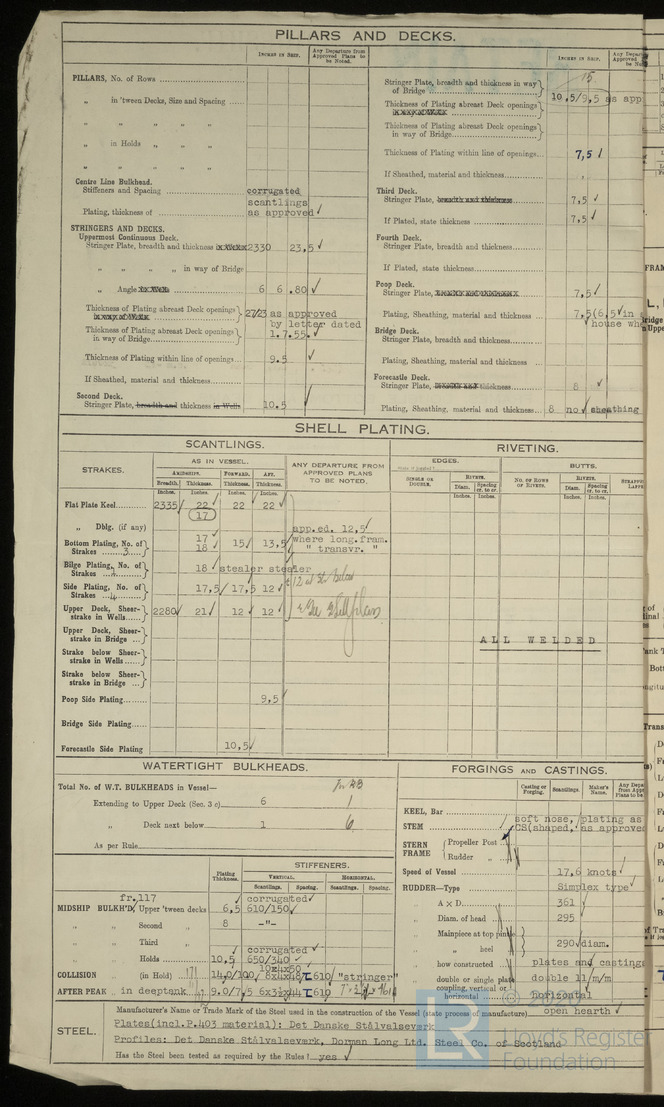 PILLARS AND DECKS.
INCHES IN SHIP.
Any Departure from Approved Plans to be Noted.
PILLARS, No. of Rows
„ in 'tween Decks, Size and Spacing
„ „ „ „
„ in Holds „ „
„ „ „ „
Centre Line Bulkhead.
Stiffeners and Spacing corrugated
scantlings
Plating, thickness of as approved ✓
STRINGERS AND DECKS.
Uppermost Continuous Deck.
Stringer Plate, breadth and thickness 2330 23,5 ✓
„ „ „ „ in way of Bridge
„ Angle 6 6 .80 ✓
Thickness of Plating abreast Deck openings 27/23 as approved
by letter dated
Thickness of Plating abreast Deck openings in way of Bridge 1.7.55. ✓
Thickness of Plating within line of openings 9.5 ✓
If Sheathed, material and thickness
Second Deck.
Stringer Plate, breadth and thickness in Wells 10.5 ✓
INCHES IN SHIP.
15
Stringer Plate, breadth and thickness in way of Bridge 10,5/9,5 as app
Thickness of Plating abreast Deck openings
Thickness of Plating abreast Deck openings in way of Bridge
Thickness of Plating within line of openings 7,5 ✓
If Sheathed, material and thickness
Third Deck.
Stringer Plate, breadth and thickness 7,5 ✓
If Plated, state thickness 7,5 ✓
Fourth Deck.
Stringer Plate, breadth and thickness
If Plated, state thickness
Poop Deck.
Stringer Plate, 7,5 ✓
Plating, Sheathing, material and thickness 7,5(6,5 ✓ in
house wh
Bridge Deck.
Stringer Plate, breadth and thickness
Plating, Sheathing, material and thickness
Forecastle Deck.
Stringer Plate, thickness 8 ✓
Plating, Sheathing, material and thickness 8 no ✓ sheathing
SHELL PLATING.
SCANTLINGS.
RIVETING.
STRAKES.
AS IN VESSEL.
AMIDSHIPS. FORWARD. AFT.
Breadth. Thickness. Thickness. Thickness.
ANY DEPARTURE FROM APPROVED PLANS TO BE NOTED.
EDGES.
SINGLE OR DOUBLE.
RIVETS.
Diam. Spacing cr. to cr.
BUTTS.
NO. OF ROWS OF RIVETS.
RIVETS.
Diam. Spacing cr. to cr.
Inches. Inches. Inches. Inches. Inches. Inches. Inches. Inches.
Flat Plate Keel 2335 ✓ 22 ✓ 22 ✓ 22 ✓
(17)
„ Dblg. (if any) app.ed. 12,5 ✓
Bottom Plating, No. of Strakes 3 17 ✓ 18 ✓ 15 ✓ 13,5 where long.fram.
" transvr. "
Bilge Plating, No. of Strakes 18 ✓ stealer stealer
Side Plating, No. of Strakes 4 17,5 ✓ 17,5 12 ✓
Upper Deck, Sheerstrake in Wells 2280 ✓ 21 ✓ 12 ✓ 12 ✓
Upper Deck, Sheerstrake in Bridge
ALL WELDED
Strake below Sheerstrake in Wells
Strake below Sheerstrake in Bridge
Poop Side Plating 9,5 ✓
Bridge Side Plating
Forecastle Side Plating 10,5 ✓
WATERTIGHT BULKHEADS.
Total No. of W.T. BULKHEADS in Vessel—
Extending to Upper Deck (Sec. 3 c) 6 1
„ Deck next below 1 6
As per Rule
Plating Thickness.
STIFFENERS.
VERTICAL. HORIZONTAL.
Scantlings. Spacing. Scantlings. Spacing.
fr.117 corrugated ✓
MIDSHIP BULKH'D, Upper 'tween decks 6,5 610/150 ✓
„ „ Second „ 8 -"-
„ „ Third „
corrugated ✓
„ „ Holds 10,5 650/340 ✓
COLLISION „ (in Hold) 14,0/100 610 "stringer"
AFTER PEAK „ in deeptank 9,0/7,5 610
FORGINGS AND CASTINGS.
Casting or Forging. Scantlings. Maker's Name.
KEEL, Bar
soft nose, plating as
STEM CS(shaped, as approve
STERN FRAME Propeller Post
Rudder „
Speed of Vessel 17,6 knots ✓
RUDDER—Type Simplex type ✓
„ A x D 361
„ Diam. of head 295
„ Mainpiece at top pintle
„ „ heel 290 ✓ diam.
„ how constructed plates and casting
„ double or single plate double 11 m/m
„ coupling, vertical or horizontal horizontal
STEEL.
Manufacturer's Name or Trade Mark of the Steel used in the construction of the Vessel (state process of manufacture) open hearth ✓
Plates(incl.P.403 material): Det Danske Stålvalseværk
Profiles: Det Danske Stålvalseværk, Dorman Long Ltd. Steel Co. of Scotland
Has the Steel been tested as required by the Rules? yes ✓
© 2020
LR
Lloyd's Register
Foundation